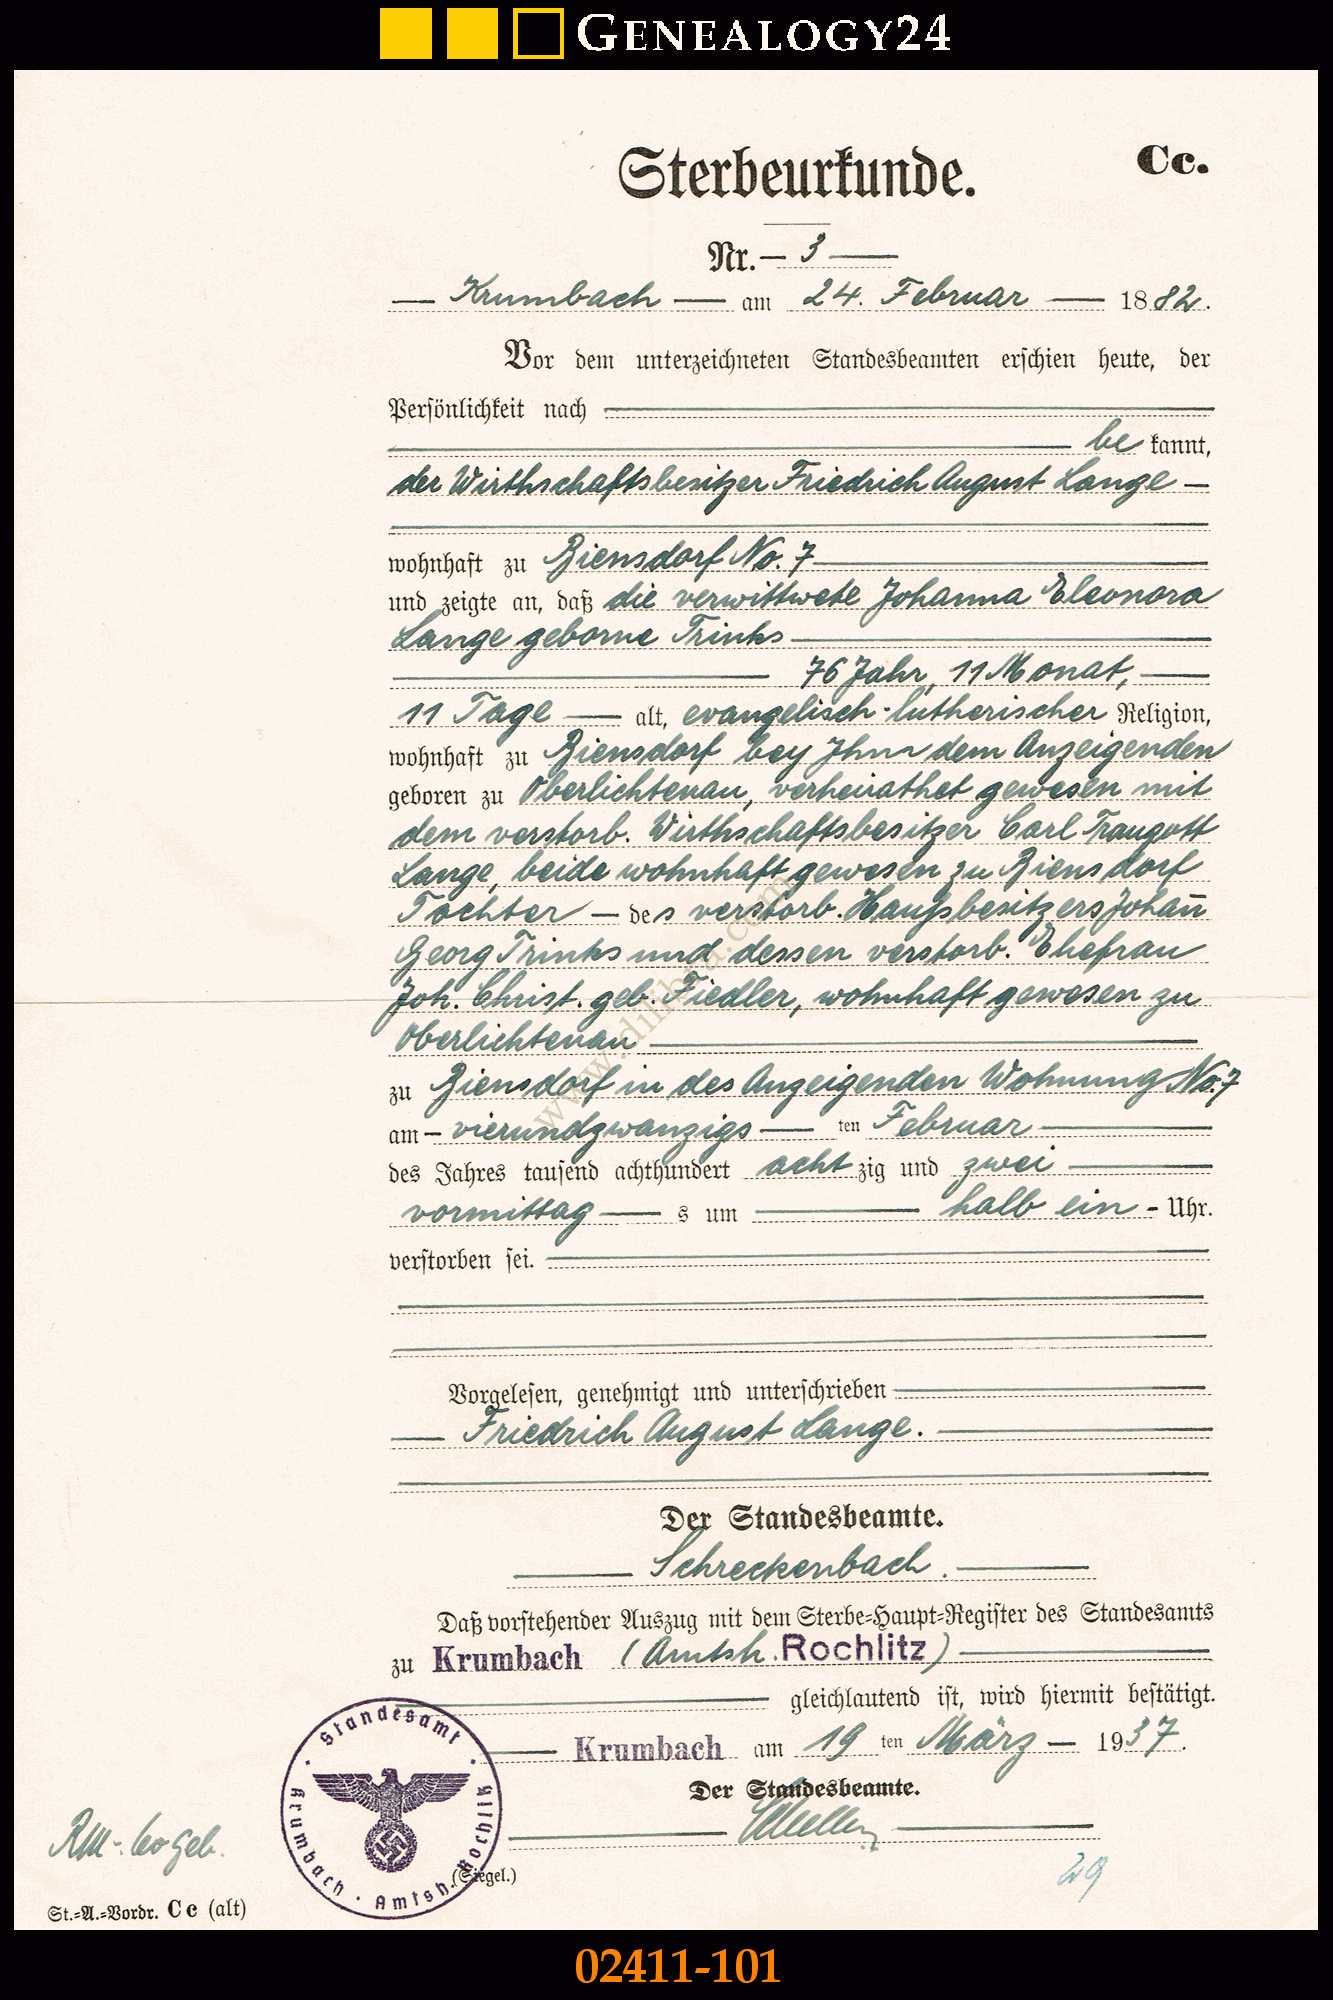 GENEALOGY24
Sterbeurkunde.
Cc.
Nr. 3
Krumbach am 24. Februar 1882.
Vor dem unterzeichneten Standesbeamten erschien heute, der
Persönlichkeit nach
be kannt,
der Wirthschaftsbesitzer Friedrich August Lange
wohnhaft zu Biensdorf No. 7
und zeigte an, daß die verwittwete Johanna Eleonora
Lange geborne Trinks
76 Jahr, 11 Monat,
11 Tage alt, evangelisch-lutherischer Religion,
wohnhaft zu Biensdorf bey Ihm dem Anzeigenden
geboren zu Oberlichtenau, verheirathet gewesen mit
dem verstorb. Wirthschaftsbesitzer Carl Traugott
Lange, beide wohnhaft gewesen zu Biensdorf
Tochter des verstorb. Haußbesitzers Johan̄
Georg Trinks und dessen verstorb. Ehefrau
Joh. Christ. geb. Fiedler, wohnhaft gewesen zu
Oberlichtenau
zu Biensdorf in des Anzeigenden Wohnung No. 7
am vierundzwanzigs ten Februar
des Jahres tausend achthundert acht zig und zwei
vormittag s um halb ein Uhr.
verstorben sei.
Vorgelesen, genehmigt und unterschrieben
Friedrich August Lange.
Der Standesbeamte.
Schreckenbach.
Daß vorstehender Auszug mit dem Sterbe-Haupt-Register des Standesamts
zu Krumbach (Amtsh. Rochlitz)
gleichlautend ist, wird hiermit bestätigt.
Krumbach am 19 ten März 1937.
Der Standesbeamte.
Standesamt
Krumbach · Amtsh. Rochlitz
(Siegel.)
29
St.-A.-Vordr. Cc (alt)
02411-101